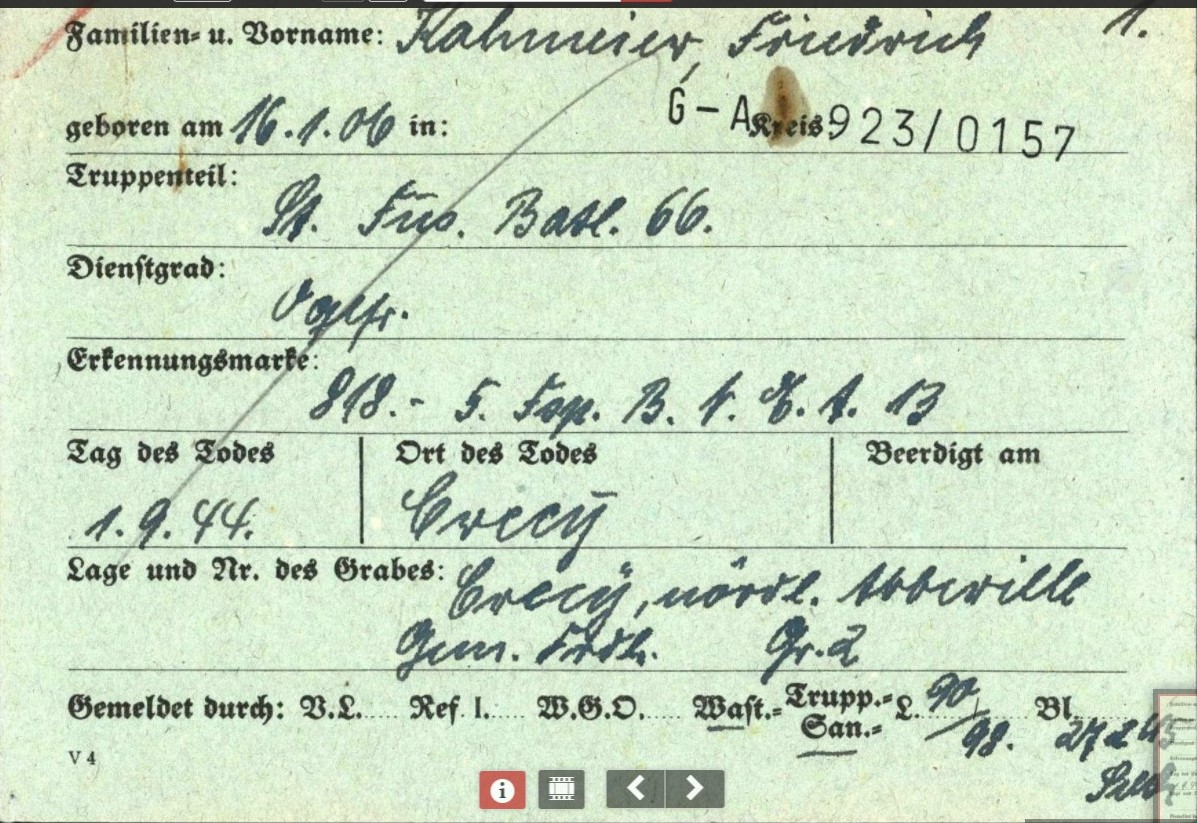 Familien= u. Vorname: Kahmeier, Friedrich 1.
G-A 923/0157
geboren am 16.1.06 in: Kreis
Truppenteil:
St. Füs. Batl. 66.
Dienstgrad:
Ogefr.
Erkennungsmarke:
818.- 5. Fsp. B. f. E. t. 13
Tag des Todes Ort des Todes Beerdigt am
1.9.44. Crecy
Lage und Nr. des Grabes: Crecy, nördl. Abbeville
Gem. Frdh. Gr. 2
Gemeldet durch: V.L. Ref. I. W.G.O. Wast.= Trupp.= San.= L. 90/98. Bl.
V 4